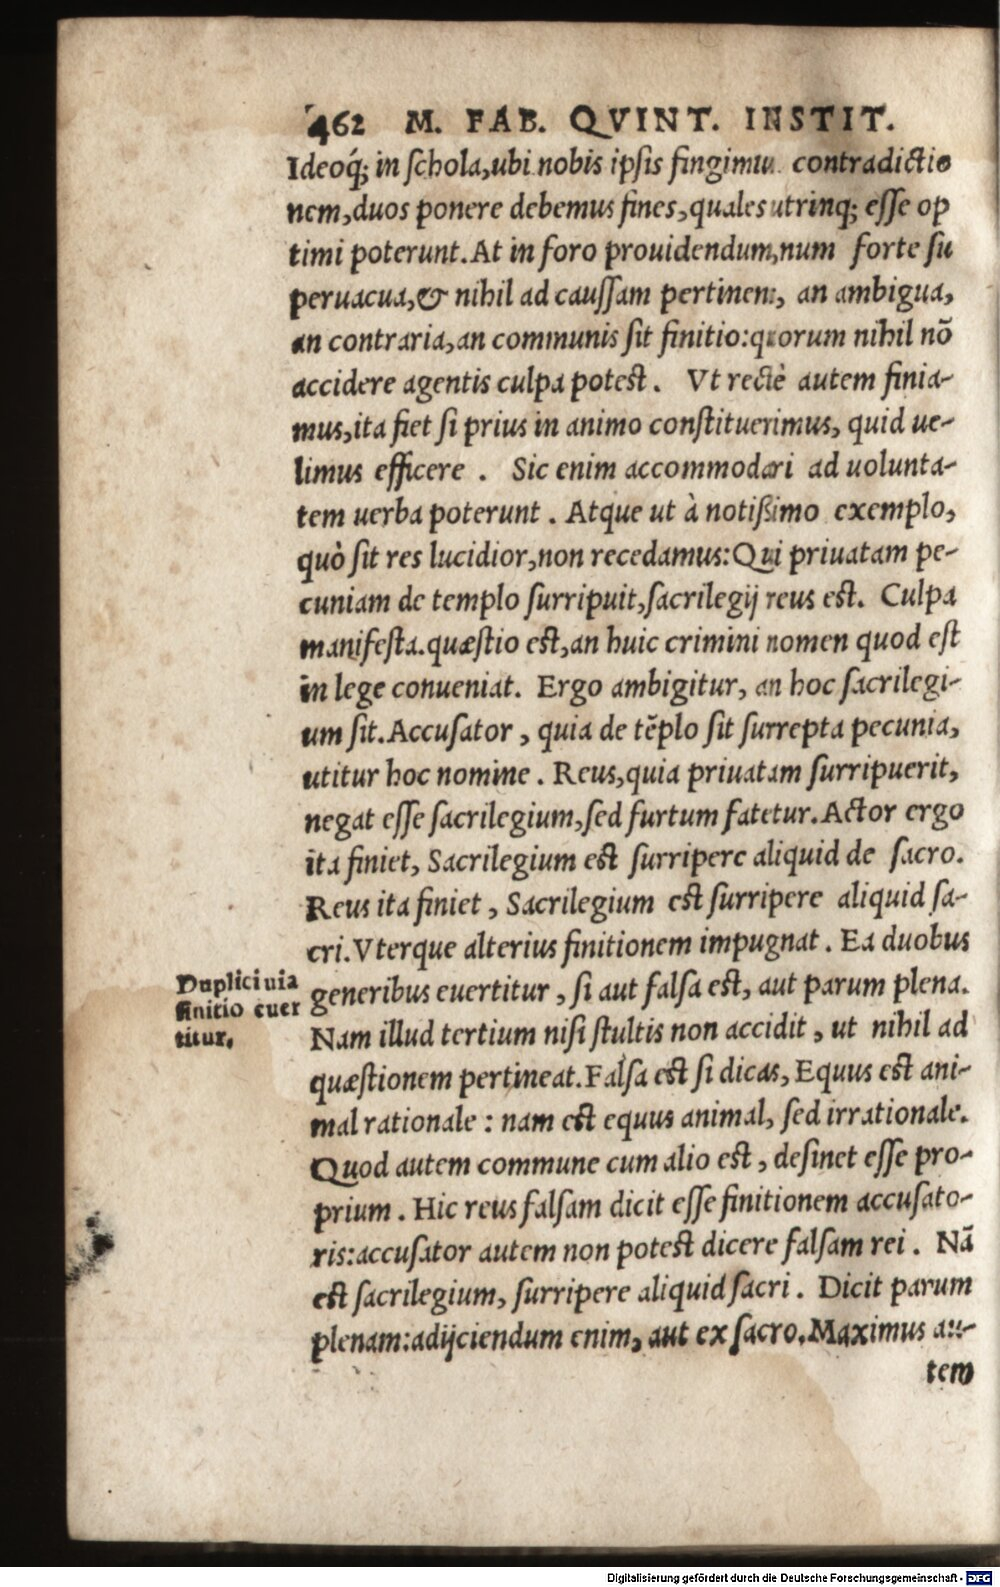 462 M. FAB. QVINT. INSTIT.
Ideoq́; in ſchola,ubi nobis ipſis fingimu contradictio
nem,duos ponere debemus fines,quales utrinq; eſſe op
timi poterunt.At in foro prouidendum,num forte ſu
peruacua,& nihil ad cauſſam pertinens, an ambigua,
an contraria,an communis ſit finitio:quorum nihil nō
accidere agentis culpa poteſt. Vt rectè autem finia-
mus,ita fiet ſi prius in animo conſtituerimus, quid ue-
limus efficere . Sic enim accommodari ad uolunta-
tem uerba poterunt . Atque ut à notißimo exemplo,
quò ſit res lucidior,non recedamus:Qui priuatam pe-
cuniam de templo ſurripuit,ſacrilegij reus eſt. Culpa
manifeſta.quæſtio eſt,an huic crimini nomen quod eſt
in lege conueniat. Ergo ambigitur, an hoc ſacrilegi-
um ſit.Accuſator , quia de tẽplo ſit ſurrepta pecunia,
utitur hoc nomine . Reus,quia priuatam ſurripuerit,
negat eſſe ſacrilegium,ſed furtum fatetur.Actor ergo
ita finiet, Sacrilegium eſt ſurripere aliquid de ſacro.
Reus ita finiet , Sacrilegium eſt ſurripere aliquid ſa-
cri.Vterque alterius finitionem impugnat . Ea duobus
Duplici uia
finitio euer
titur.
generibus euertitur , ſi aut falſa eſt, aut parum plena.
Nam illud tertium niſi ſtultis non accidit , ut nihil ad
quæſtionem pertineat.Falſa eſt ſi dicas, Equus eſt ani-
mal rationale : nam eſt equus animal, ſed irrationale.
Quod autem commune cum alio eſt , deſinet eſſe pro-
prium . Hic reus falſam dicit eſſe finitionem accuſato-
ris:accuſator autem non poteſt dicere falſam rei . Nā
eſt ſacrilegium, ſurripere aliquid ſacri . Dicit parum
plenam:adijciendum enim, aut ex ſacro.Maximus au-
tem
Digitalisierung gefördert durch die Deutsche Forschungsgemeinschaft - DFG